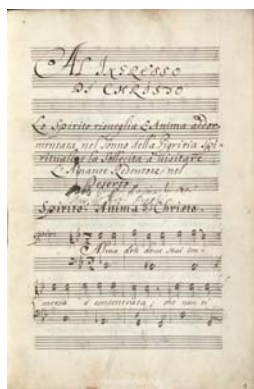 AL INGRESSO
DI CHRISTO
Lo Spirito risueglia L'Anima addor-
mentata nel sonno della Pigritia Spi-
rituale e la Sollecita à uisitare
L'Amante Redentore nel
Deserto
Spirito. Anima. Christo.
Spirito
Alma doue stai im-
mersa e concentrata, che non ti